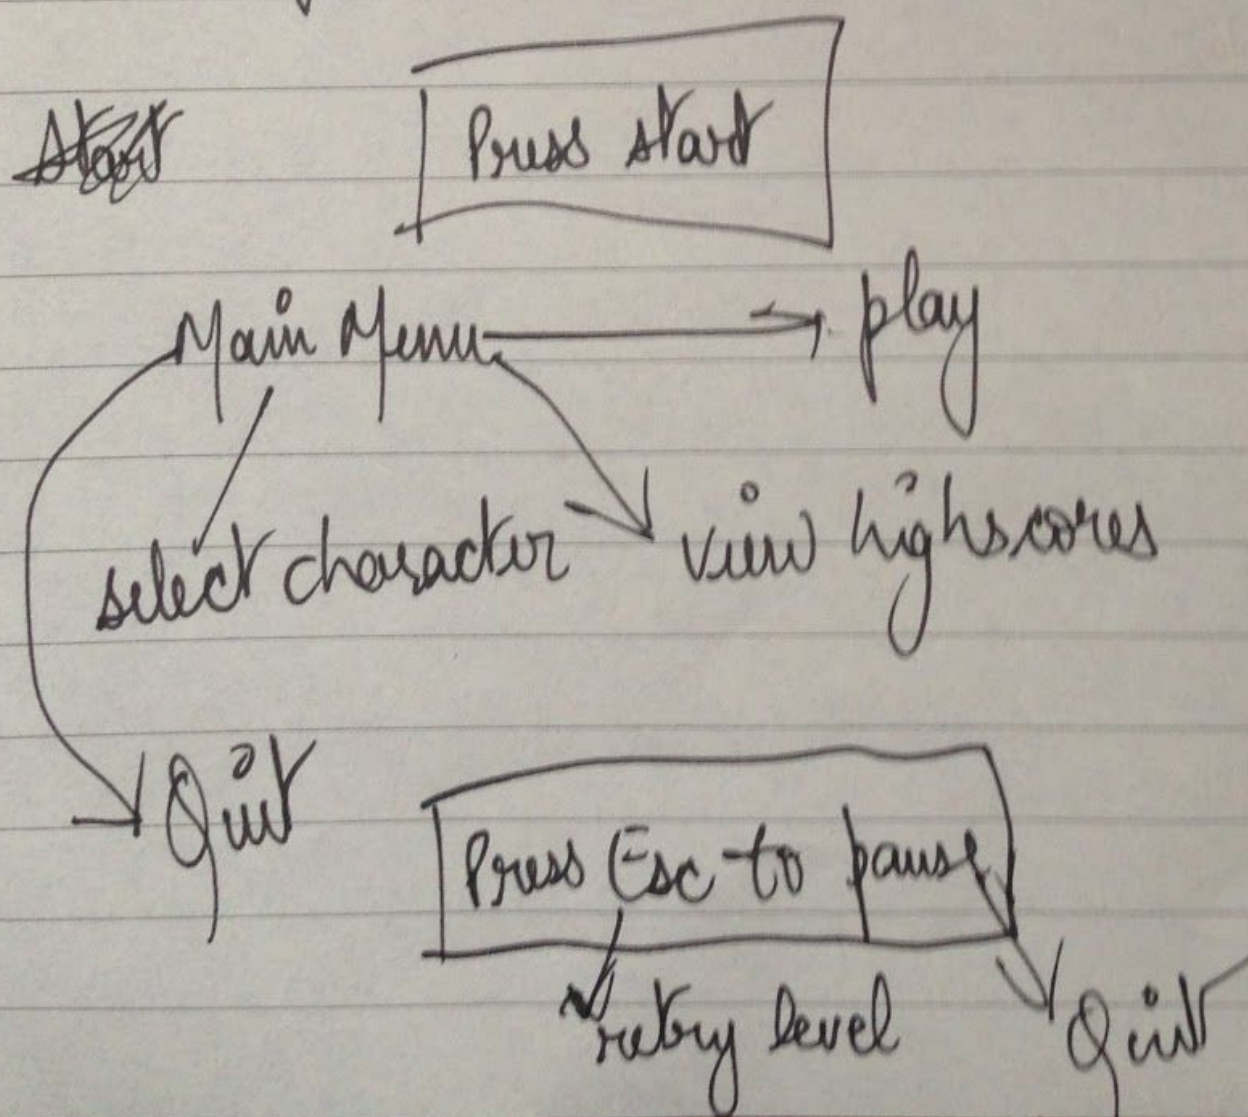 Start
Press start
Main Menu play
select character view highscores
Quit
Press Esc to pause
retry level Quit